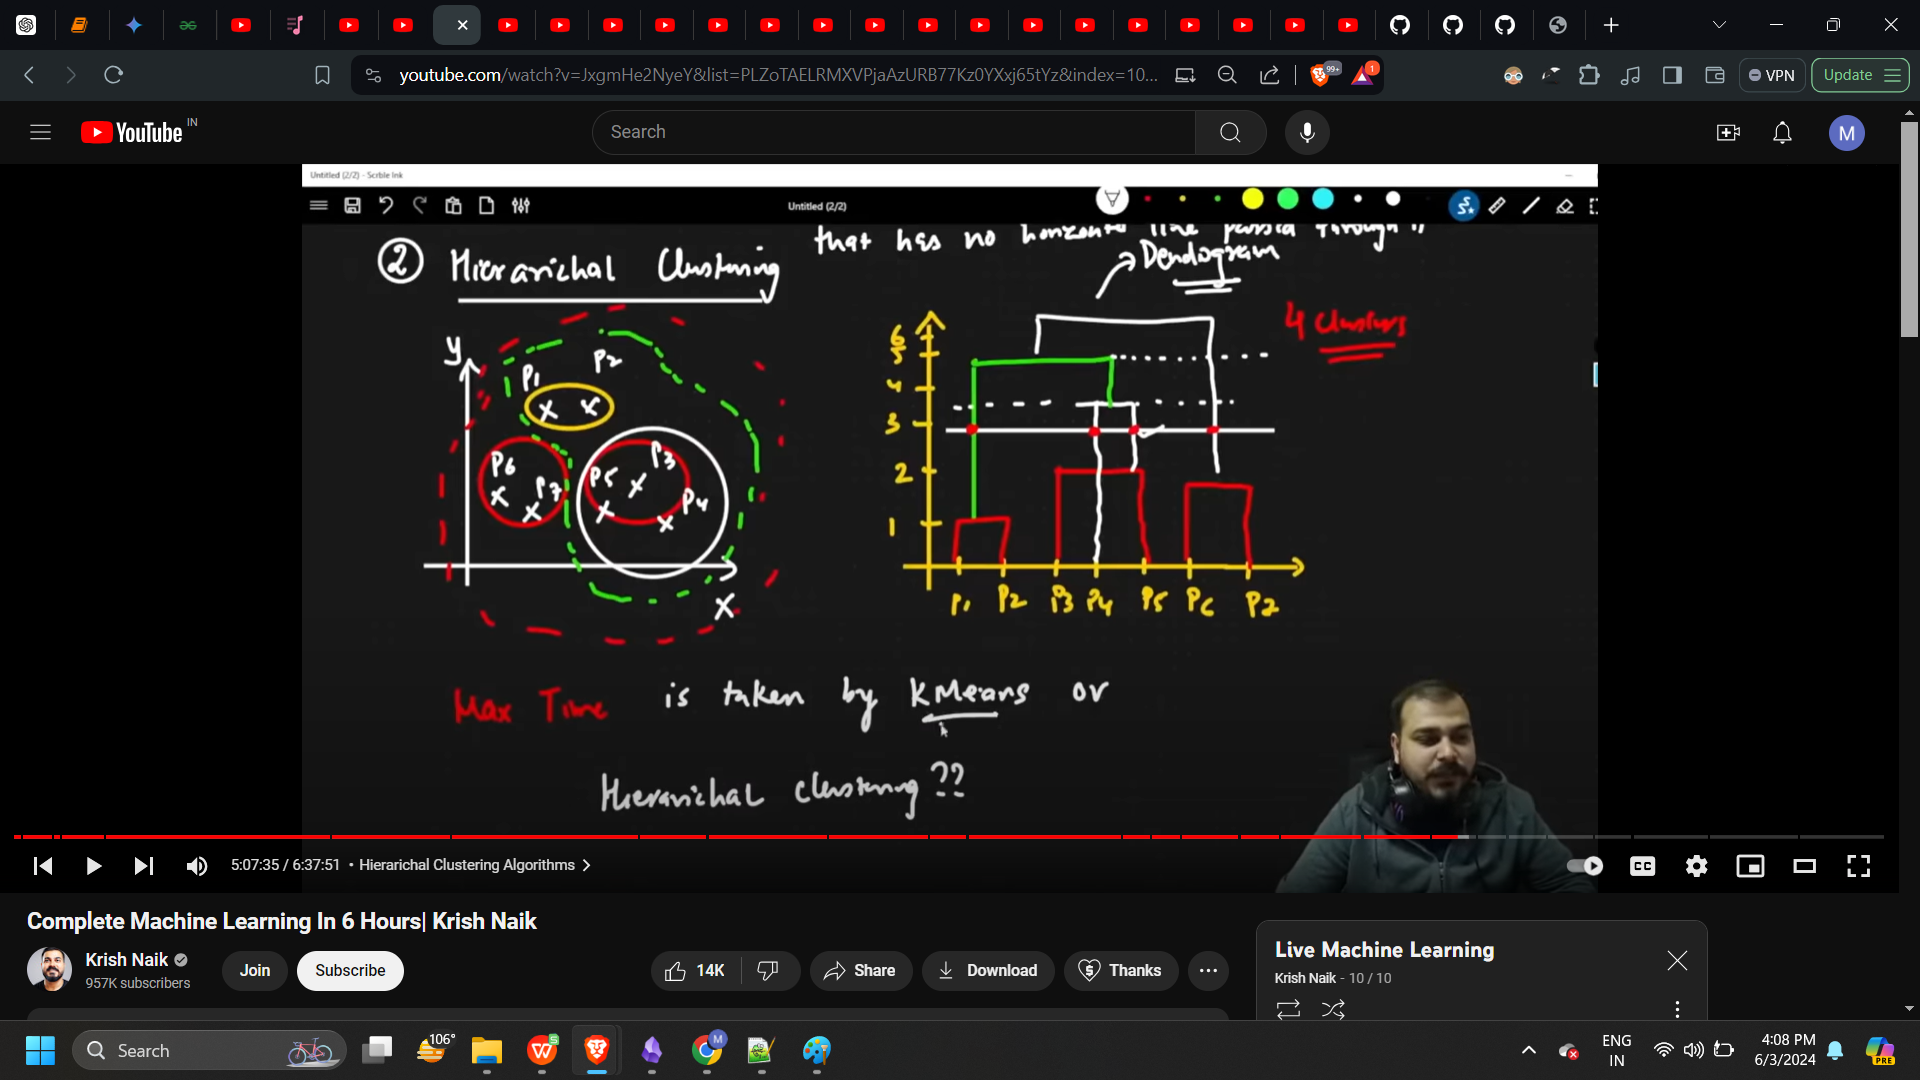 youtube.com/watch?v=JxgmHe2NyeY&list=PLZoTAELRMXVPjaAzURB77Kz0YXxj65tYz&index=10...
99+
1
VPN
Update
YouTube IN
Search
M
Untitled (2/2) - Scrble Ink
Untitled (2/2)
that has no horizontal line passed through it
② Hierarichal Clustering
Dendogram
4 clusters
y
P1
P2
P6
P7
P5
P3
P4
X
6
5
4
3
2
1
P1 P2 P3 P4 P5 P6 P7
Max Time is taken by KMeans or
Hierarichal clustering ??
5:07:35 / 6:37:51 • Hierarichal Clustering Algorithms
CC
Complete Machine Learning In 6 Hours| Krish Naik
Krish Naik
957K subscribers
Join
Subscribe
14K
Share
Download
Thanks
Live Machine Learning
Krish Naik - 10 / 10
Search
106°
M
ENG
IN
4:08 PM
6/3/2024
PRE